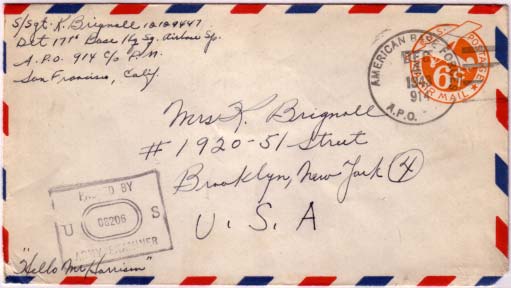 S/Sgt. K. Brignall 12189447
Det 171st Base Hq. Sq. Airdrome Sq.
A.P.O. 914 c/o P.M.
San Francisco, Calif.
U.S. POSTAGE
6¢
AIR MAIL
AMERICAN BASE FORCES
FEB
914
A.P.O.
Mrs K. Brignall
# 1920-51 Street
Brooklyn, New York 4
U.S.A
PASSED BY
U 08206 S
ARMY EXAMINER
"Hello Mr Harrison"